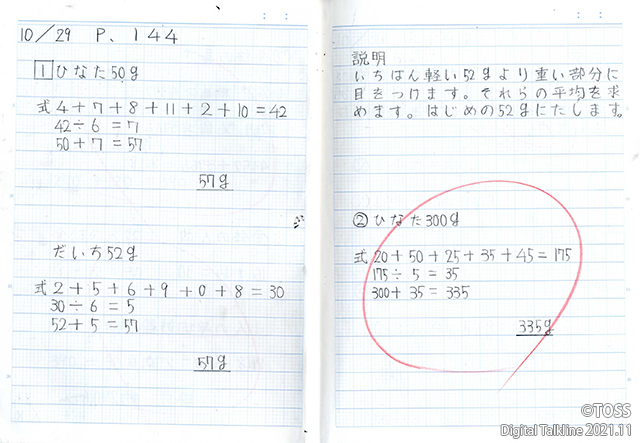 10/29 P、144
1 ひなた50g
式 4+7+8+11+2+10=42
42÷6=7
50+7=57
57g
だいち52g
式 2+5+6+9+0+8=30
30÷6=5
52+5=57
57g
説明
いちばん軽い52gより重い部分に
目をつけます。それらの平均を求
めます。はじめの52gにたします。
② ひなた300g
式 20+50+25+35+45=175
175÷5=35
300+35=335
335g
©TOSS
Digital Talkline 2021.11